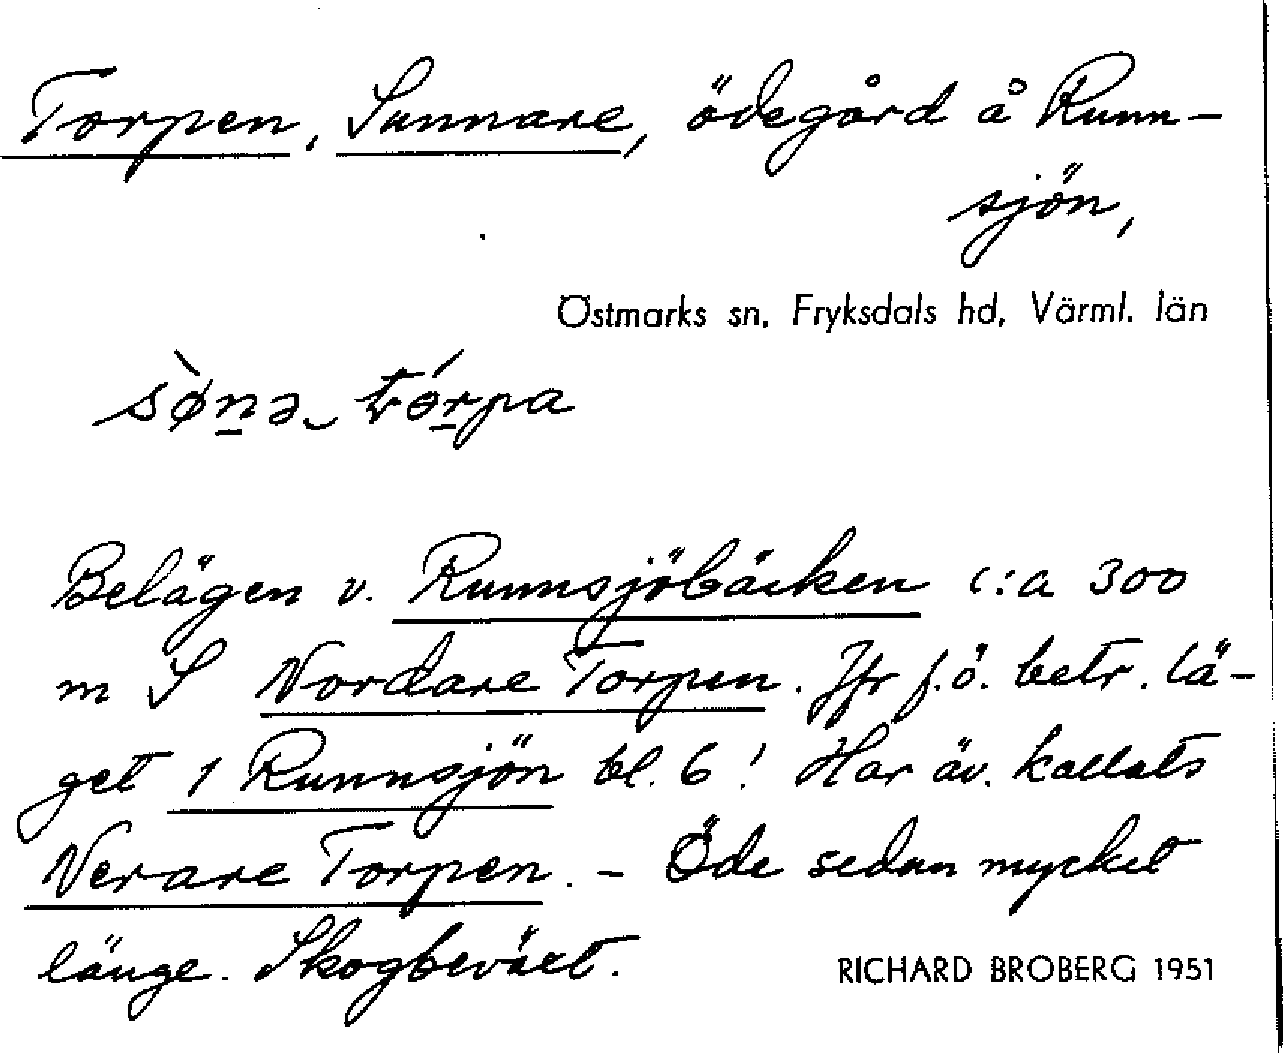 Torpen, Sunnare, ödegård å Runn-
sjön,
Östmarks sn, Fryksdals hd, Värml. län
sø̀n̠ə‿tórp̠a
Belägen v. Runnsjöbäcken c:a 300
m S Nordare Torpen. Jfr f.ö. betr. lä-
get 1 Runnsjön bl. 6! Har äv. kallats
Nerare Torpen. - Öde sedan mycket
länge. Skogbeväxt.
RICHARD BROBERG 1951